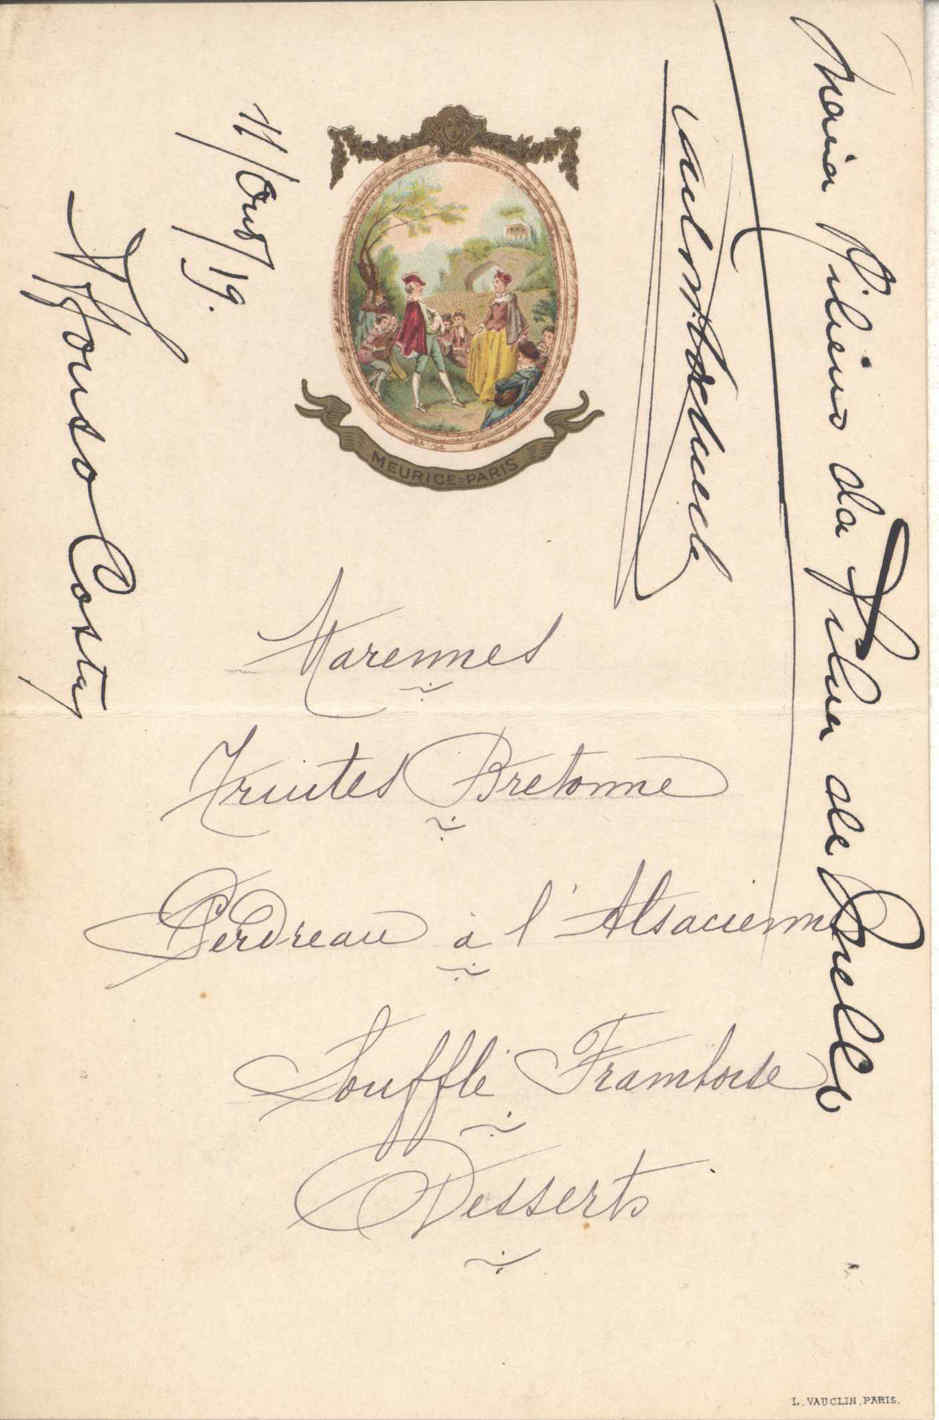 MEURICE-PARIS
Marennes
Truites Bretonne
Perdreau à l'Alsacienne
Soufflé Framboise
Desserts
11/Out/19.
Affonso Costa
Maria Ribeiro da Silva de Mello
L. VAUCLIN, PARIS.